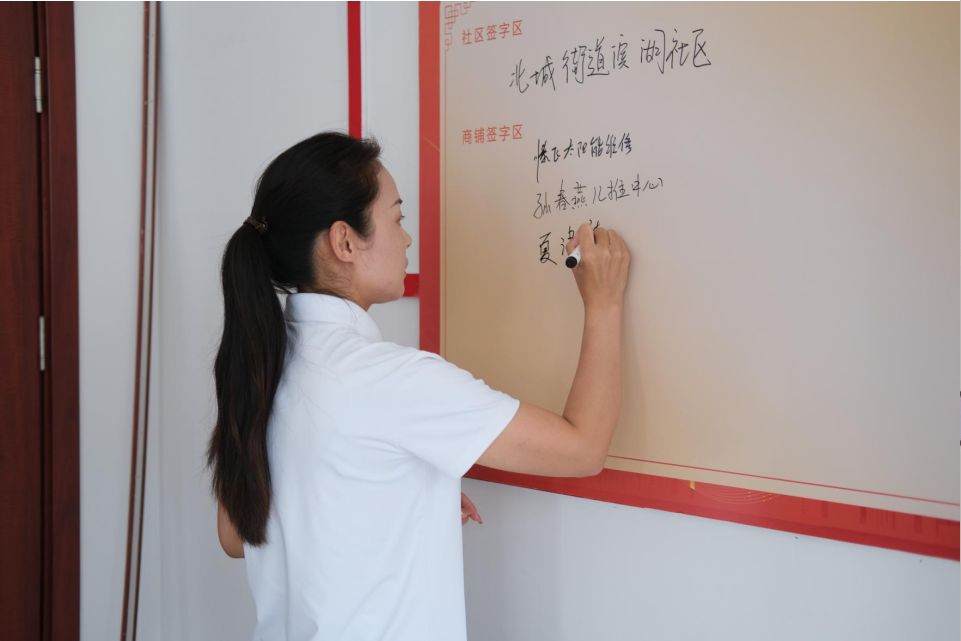 社区签字区
北城街道滨湖社区
商铺签字区
飞太阳能维修
孙春燕儿推中心
夏